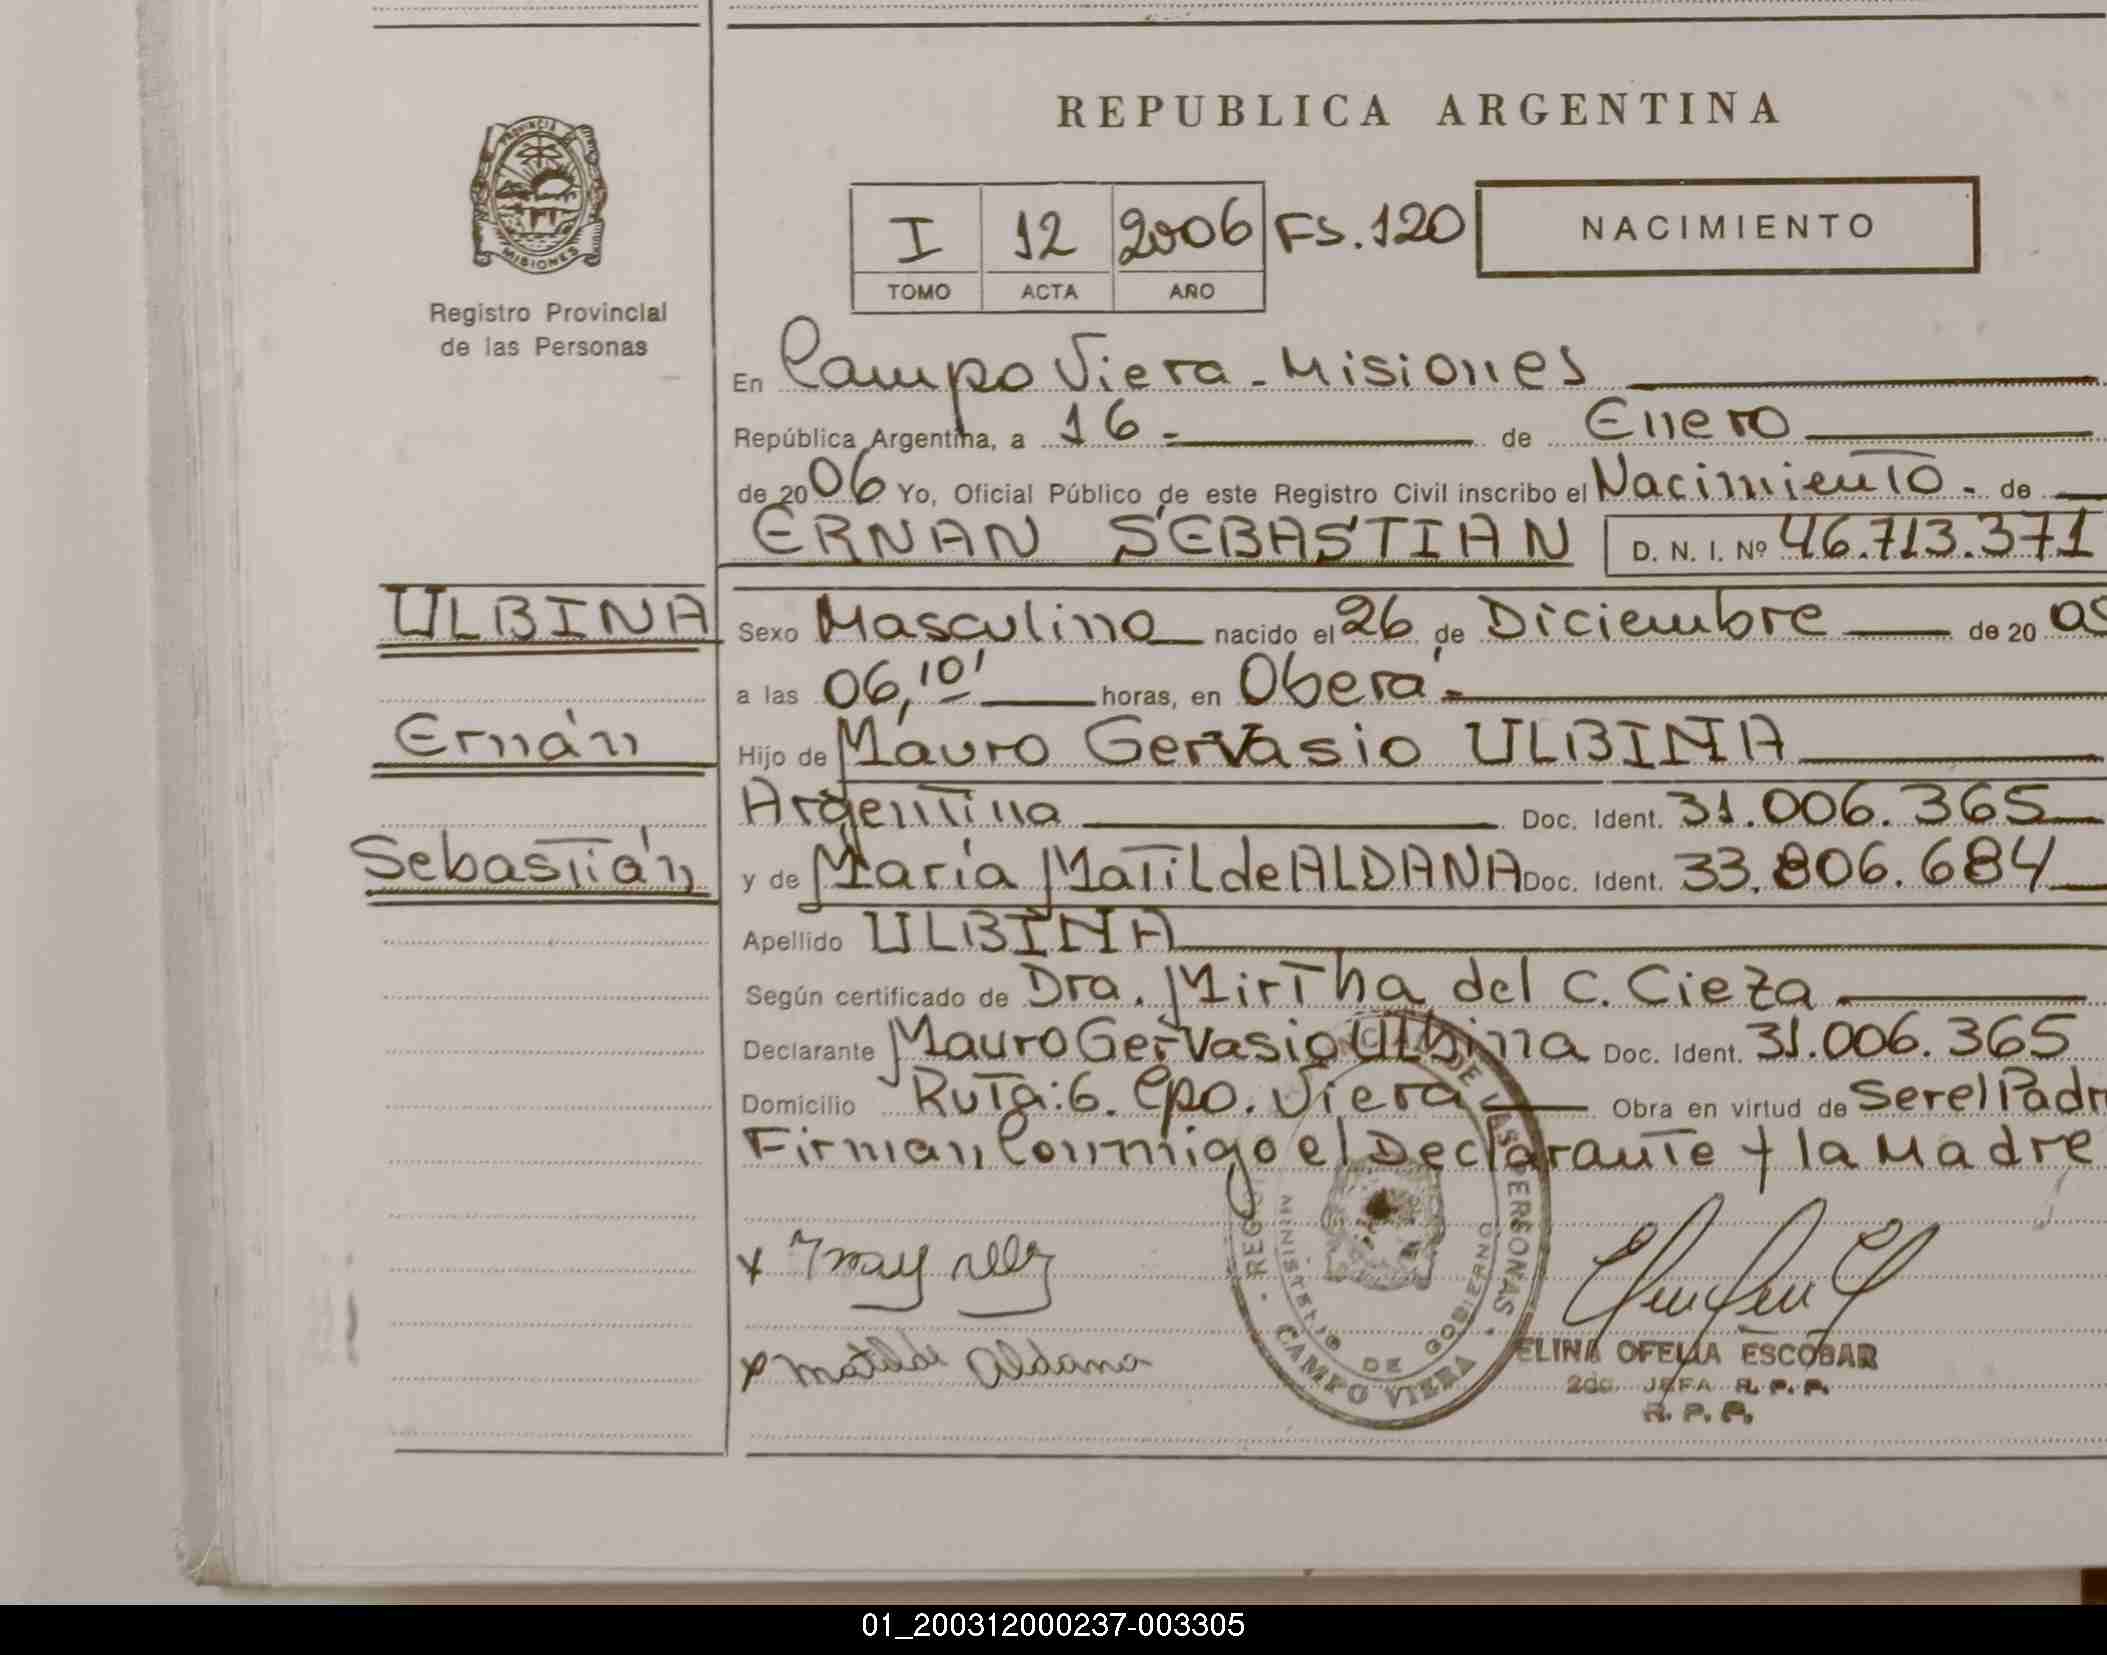 REPUBLICA ARGENTINA
PROVINCIA DE MISIONES
Registro Provincial
de las Personas
I 12 2006 FS. 120 NACIMIENTO
TOMO ACTA AÑO
En Campo Viera - Misiones
República Argentina, a 16 - de Enero
de 2006 Yo, Oficial Público de este Registro Civil inscribo el Nacimiento - de
ERNÁN SEBASTIÁN D. N. I. Nº 46.713.371
ULBINA
Sexo Masculino nacido el 26 de Diciembre de 20 05
a las 06,10' horas, en Oberá -
Ernán
Hijo de Mauro Gervasio ULBINA
Argentina Doc. Ident. 31.006.365
Sebastián
y de María Matilde ALDANA Doc. Ident. 33.806.684
Apellido ULBINA
Según certificado de Dra. Mirtha del C. Cieza
Declarante Mauro Gervasio Ulbina Doc. Ident. 31.006.365
Domicilio Ruta: 6. Cpo. Viera Obra en virtud de Ser el Padr
Firman Conmigo el Declarante y la Madre
x
x Matilde Aldana
DE LAS PERSONAS
MINISTERIO DE GOBIERNO
CAMPO VIERA
ELINA OFELIA ESCOBAR
2da. JEFA R. P. P.
R. P. P.
01_200312000237-003305